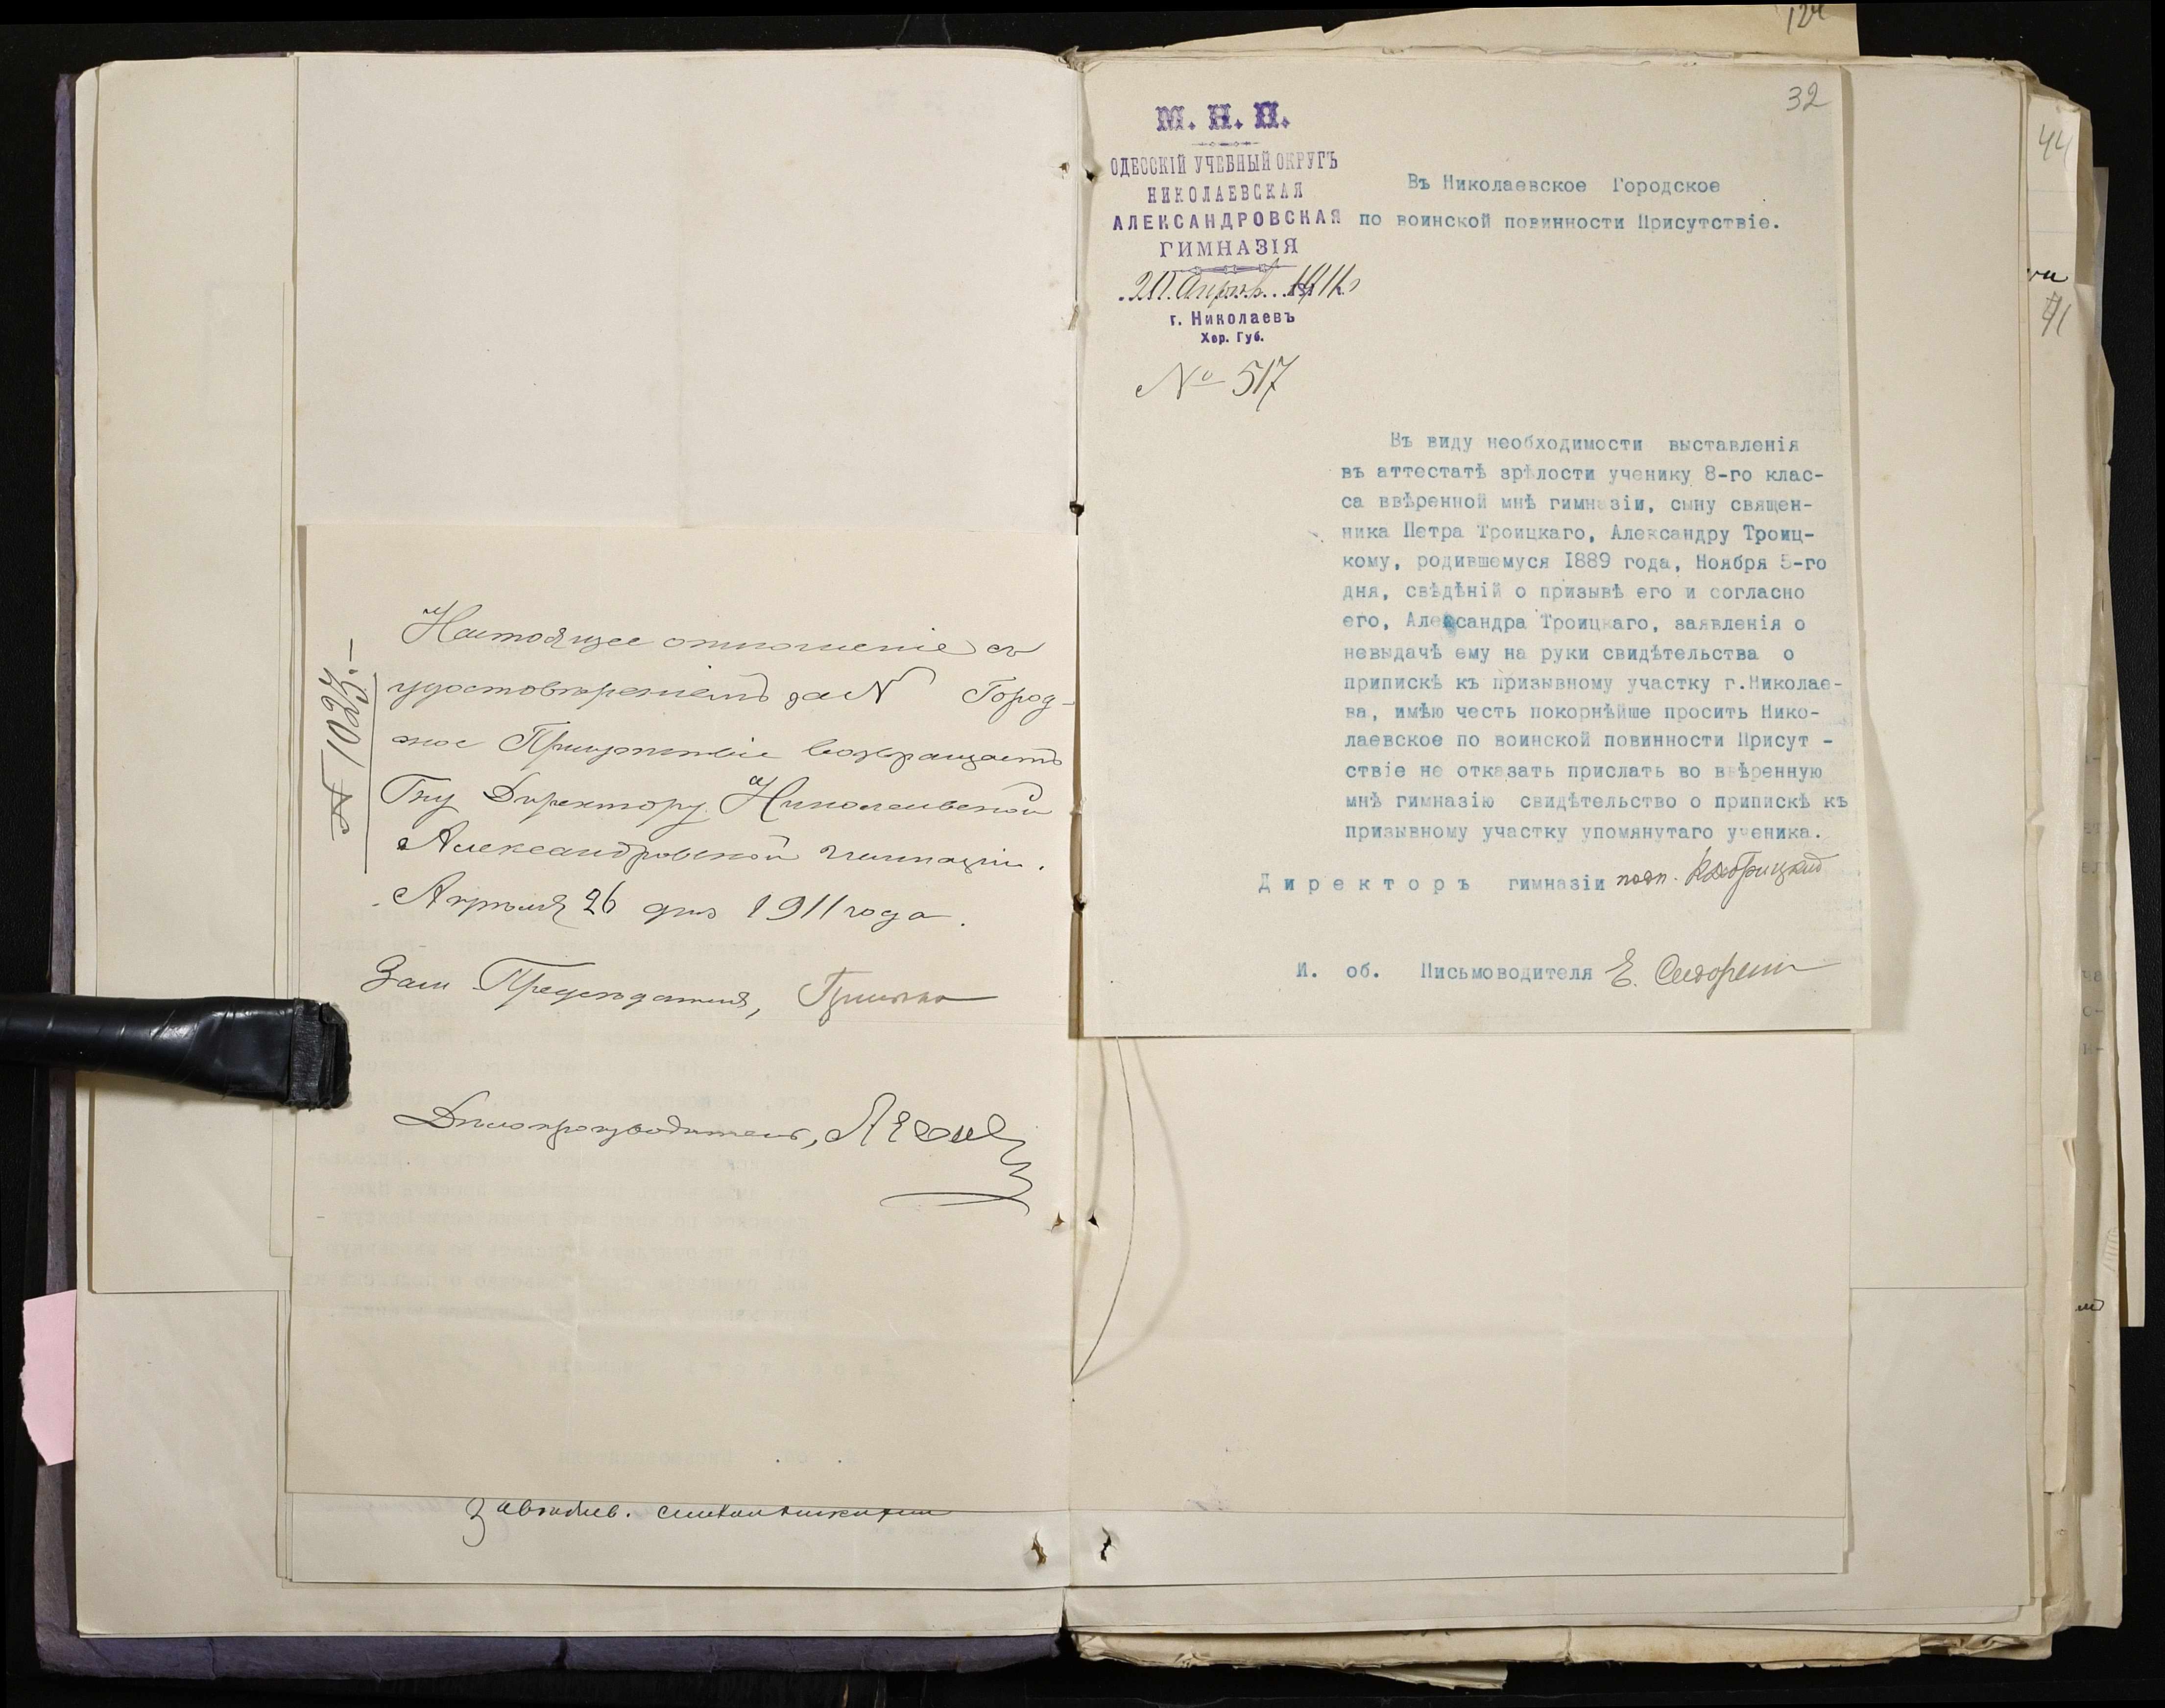 Настоящее отношение съ
удостовѣреніемъ за N Город-
ское Присутствіе возвращаетъ
Гну Директору Николаевской
Александровской гимназіи.
Апрѣля 26 дня 1911 года.
Делопроизводитель,
124
32
М. Н. П.
ОДЕССКІЙ УЧЕБНЫЙ ОКРУГЪ
НИКОЛАЕВСКАЯ
АЛЕКСАНДРОВСКАЯ
ГИМНАЗІЯ
г. Николаевъ
Хер. Губ.
№ 517
Въ Николаевское Городское
по воинской повинности Присутствіе.
Въ виду необходимости выставленія
въ аттестатѣ зрѣлости ученику 8-го клас-
са ввѣренной мнѣ гимназіи, сыну священ-
ника Петра Троицкаго, Александру Троиц-
кому, родившемуся 1889 года, Ноября 5-го
дня, свѣдѣній о призывѣ его и согласно
его, Александра Троицкаго, заявленія о
невыдачѣ ему на руки свидѣтельства о
припискѣ къ призывному участку г.Николае-
ва, имѣю честь покорнѣйше просить Нико-
лаевское по воинской повинности Присут -
ствіе не отказать прислать во ввѣренную
мнѣ гимназію свидѣтельство о припискѣ къ
призывному участку упомянутаго ученика.
Директоръ гимназіи подп.
И. об. Письмоводителя Е.
44